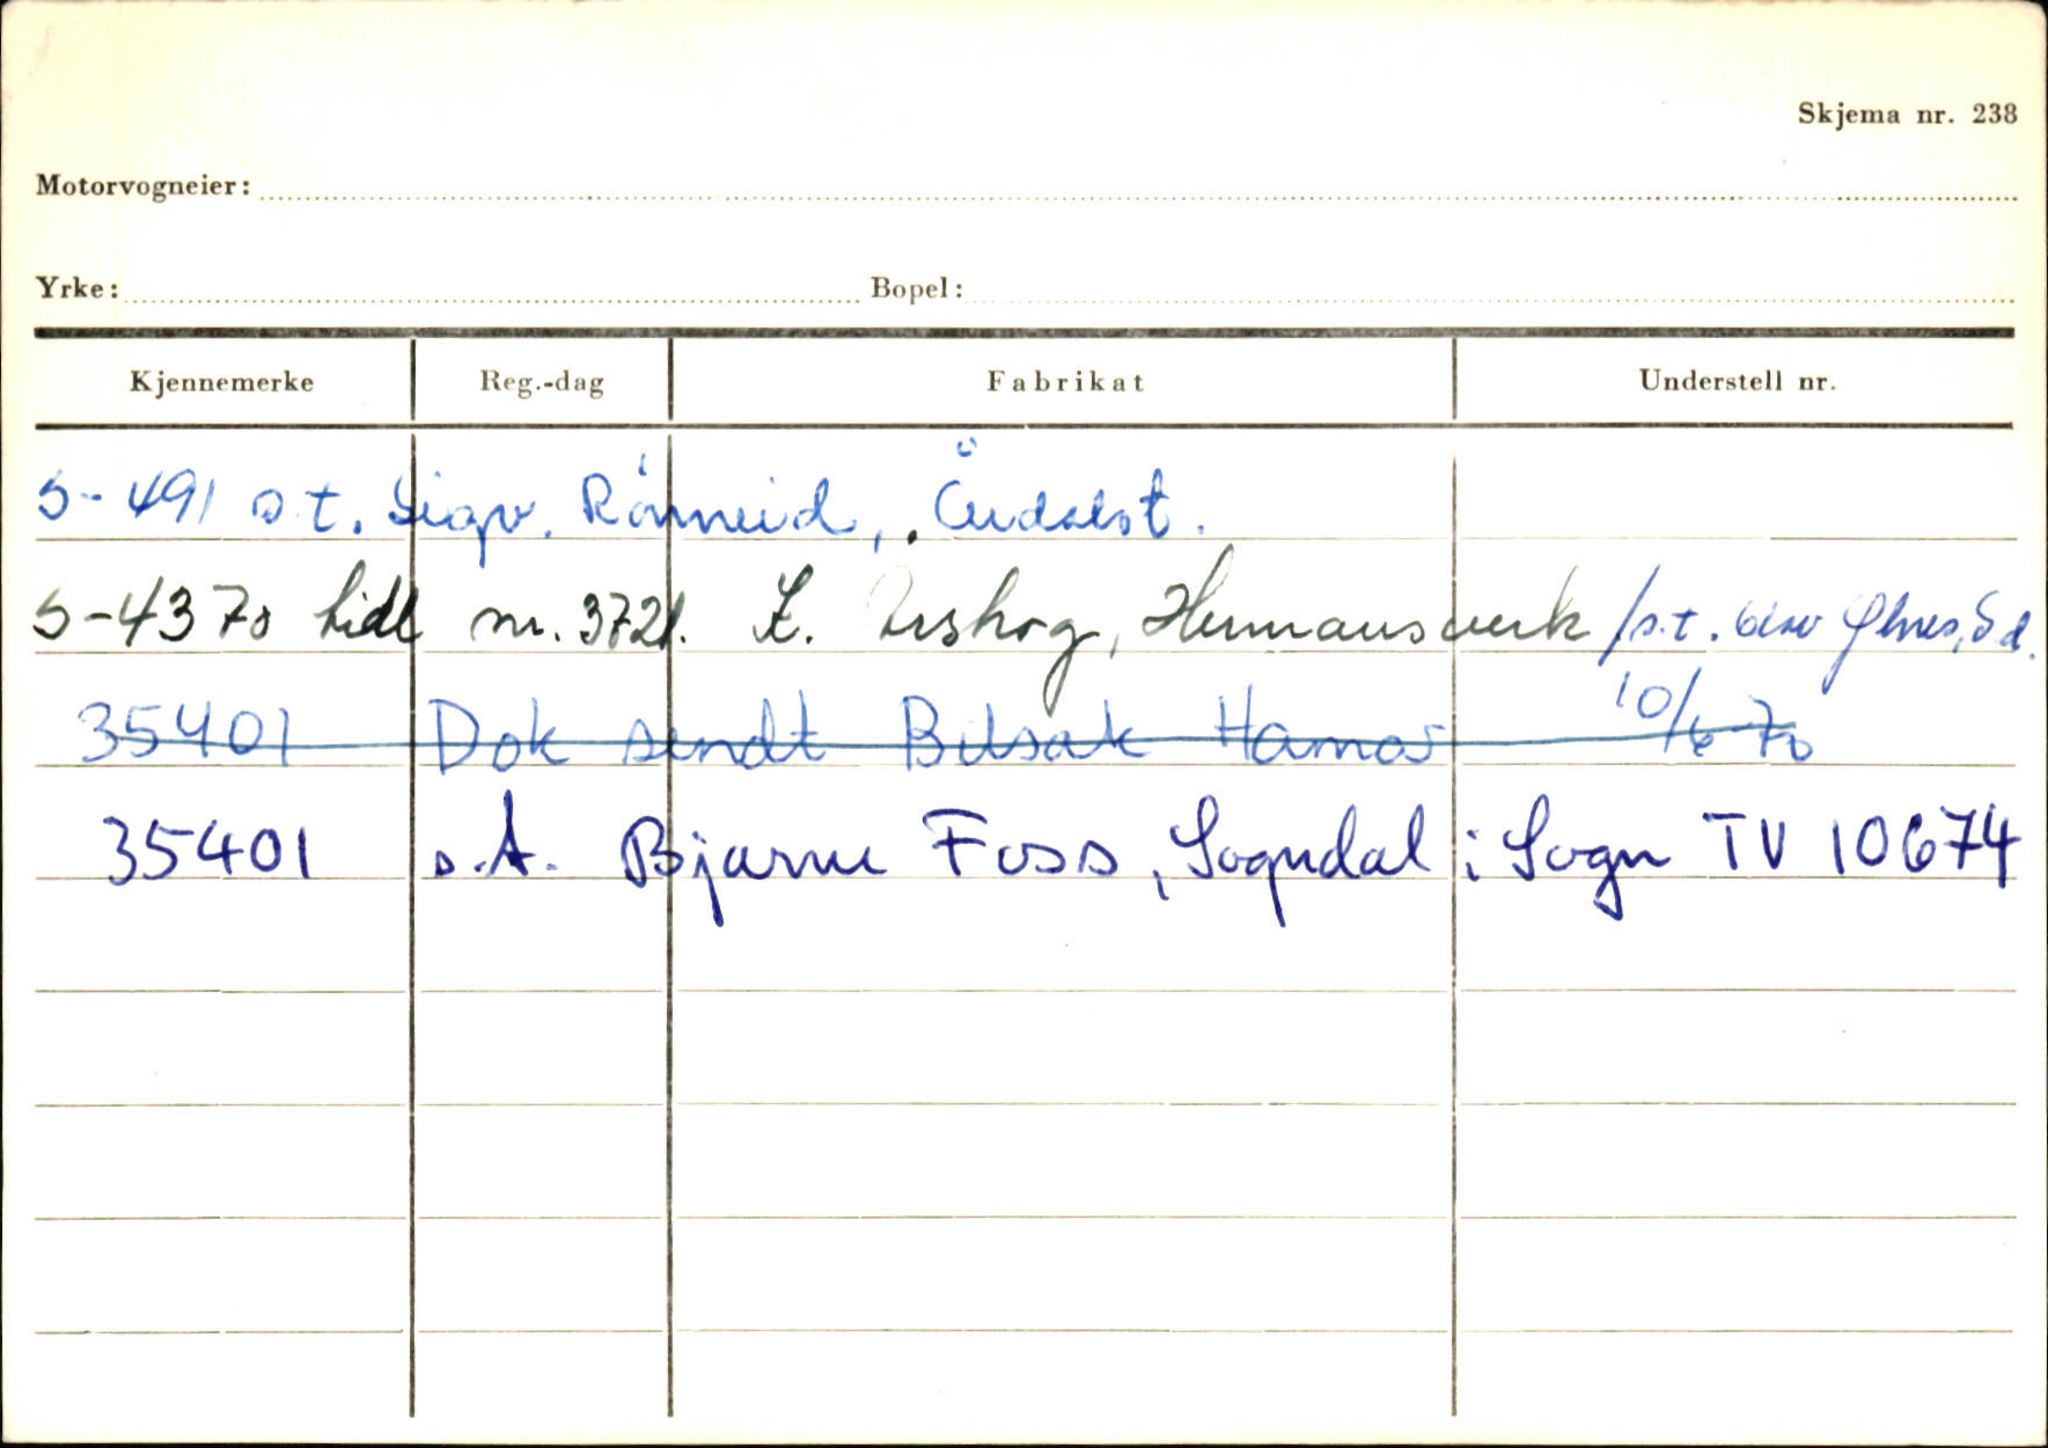 Skjema nr. 238
Motorvogneier:
Yrke: Bopel:
Kjennemerke Reg.-dag Fabrikat Understell nr.
S-491 s.t. Sigv. Rönneid,
S-4370 tidl nr. 3721. Hermansverk /s.t. Ølnes, Sd.
35401 Dok sendt Bilsak Hamar 10/6 70
35401 s.t. Bjarne Foss, Sogndal i Sogn TV 10674